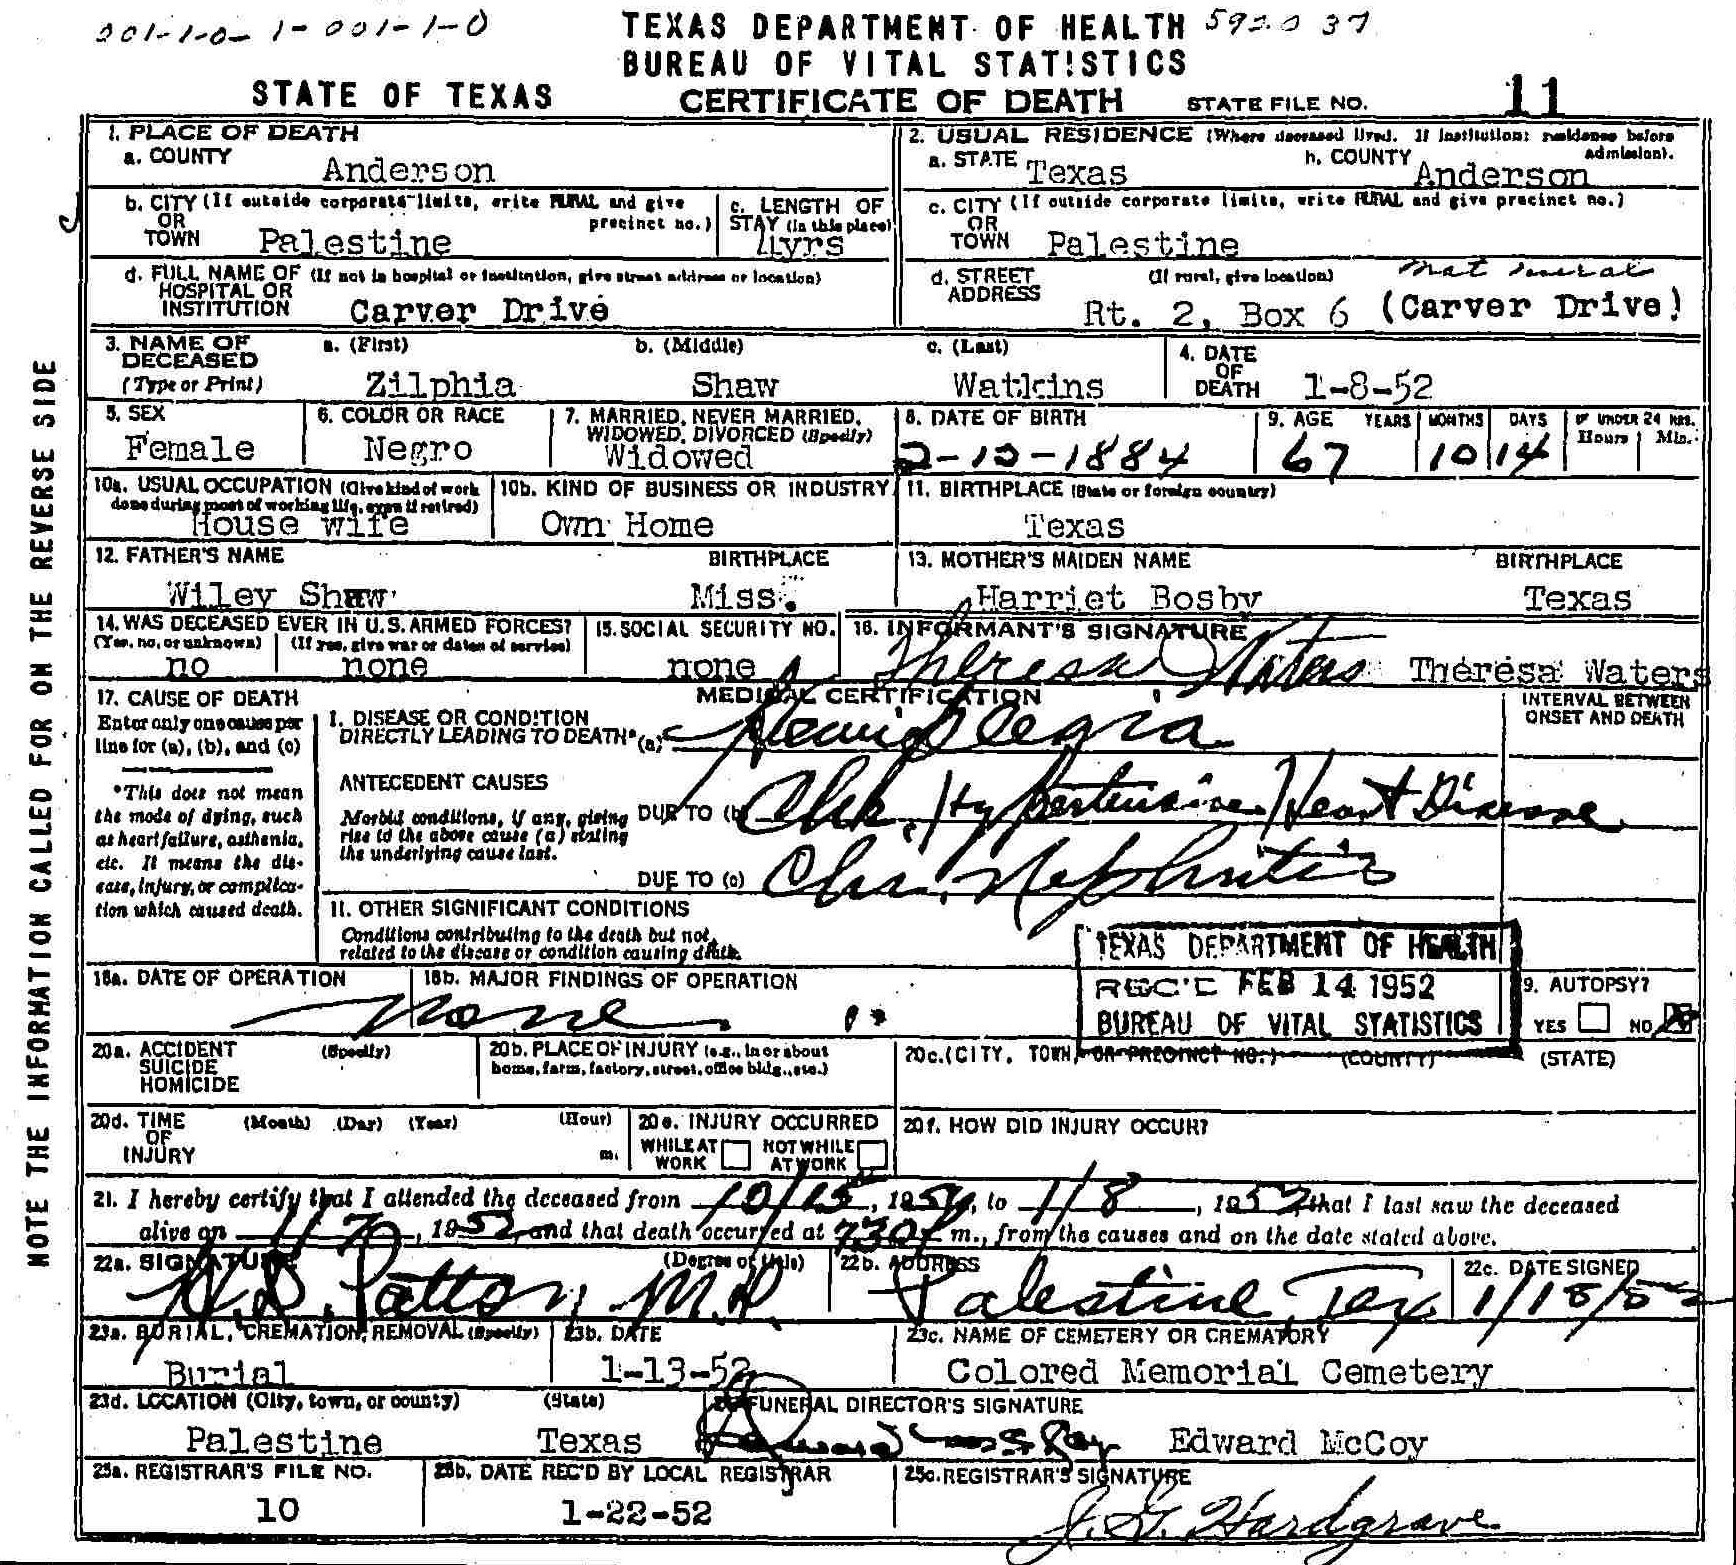 001-1-0- 1-001-1-0 TEXAS DEPARTMENT OF HEALTH 592037
BUREAU OF VITAL STATISTICS
STATE OF TEXAS CERTIFICATE OF DEATH STATE FILE NO. 11
1. PLACE OF DEATH
a. COUNTY Anderson
2. USUAL RESIDENCE (Where deceased lived. If institution: residence before admission).
a. STATE Texas b. COUNTY Anderson
b. CITY (If outside corporate limits, write RURAL and give precinct no.)
OR
TOWN Palestine
c. LENGTH OF
STAY (in this place)
yrs
c. CITY (If outside corporate limits, write RURAL and give precinct no.)
OR
TOWN Palestine
d. FULL NAME OF (If not in hospital or institution, give street address or location)
HOSPITAL OR
INSTITUTION Carver Drive
d. STREET (If rural, give location) not rural
ADDRESS Rt. 2, Box 6 (Carver Drive)
3. NAME OF DECEASED
(Type or Print)
a. (First) b. (Middle) c. (Last)
Zilphia Shaw Watkins
4. DATE
OF
DEATH 1-8-52
5. SEX
Female
6. COLOR OR RACE
Negro
7. MARRIED, NEVER MARRIED,
WIDOWED, DIVORCED (Specify)
Widowed
8. DATE OF BIRTH
-1884
9. AGE YEARS MONTHS DAYS IF UNDER 24 HRS.
Hours Min.
67 10 14
10a. USUAL OCCUPATION (Give kind of work
done during most of working life, even if retired)
House wife
10b. KIND OF BUSINESS OR INDUSTRY
Own Home
11. BIRTHPLACE (State or foreign country)
Texas
12. FATHER'S NAME BIRTHPLACE
Wiley Shaw Miss.
13. MOTHER'S MAIDEN NAME BIRTHPLACE
Harriet Bosby Texas
14. WAS DECEASED EVER IN U.S. ARMED FORCES?
(Yes, no, or unknown) (If yes, give war or dates of service)
no none
15. SOCIAL SECURITY NO.
none
16. INFORMANT'S SIGNATURE
Theresa Waters Theresa Waters
17. CAUSE OF DEATH
Enter only one cause per
line for (a), (b), and (c)
*This does not mean
the mode of dying, such
as heart failure, asthenia,
etc. It means the dis-
ease, injury, or complica-
tion which caused death.
MEDICAL CERTIFICATION
INTERVAL BETWEEN
ONSET AND DEATH
I. DISEASE OR CONDITION
DIRECTLY LEADING TO DEATH* (a) Hemiplegia
ANTECEDENT CAUSES
Morbid conditions, if any, giving
rise to the above cause (a) stating
the underlying cause last.
DUE TO (b) Hypertensive Heart Disease
DUE TO (c) Chr. Nephritis
II. OTHER SIGNIFICANT CONDITIONS
Conditions contributing to the death but not
related to the disease or condition causing death.
TEXAS DEPARTMENT OF HEALTH
REC'D FEB 14 1952
BUREAU OF VITAL STATISTICS
18a. DATE OF OPERATION 18b. MAJOR FINDINGS OF OPERATION
None
9. AUTOPSY?
YES NO
20a. ACCIDENT (Specify)
SUICIDE
HOMICIDE
20b. PLACE OF INJURY (e.g., in or about
home, farm, factory, street, office bldg., etc.)
20c. (CITY, TOWN, OR PRECINCT NO.) (COUNTY) (STATE)
20d. TIME (Month) (Day) (Year) (Hour)
OF
INJURY m.
20e. INJURY OCCURRED
WHILE AT WORK NOT WHILE AT WORK
20f. HOW DID INJURY OCCUR?
21. I hereby certify that I attended the deceased from 10/15, 195, to 1/8, 1952, that I last saw the deceased
alive on 1/7, 1952, and that death occurred at 730P m., from the causes and on the date stated above.
22a. SIGNATURE (Degree or title)
H.D. Patton M.D.
22b. ADDRESS
Palestine Tex
22c. DATE SIGNED
1/18/52
23a. BURIAL, CREMATION, REMOVAL (Specify)
Burial
23b. DATE
1-13-52
23c. NAME OF CEMETERY OR CREMATORY
Colored Memorial Cemetery
23d. LOCATION (City, town, or county) (State)
Palestine Texas
FUNERAL DIRECTOR'S SIGNATURE
Edward McCoy Edward McCoy
25a. REGISTRAR'S FILE NO.
10
25b. DATE REC'D BY LOCAL REGISTRAR
1-22-52
25c. REGISTRAR'S SIGNATURE
J. G. Hardgrave
NOTE THE INFORMATION CALLED FOR ON THE REVERSE SIDE